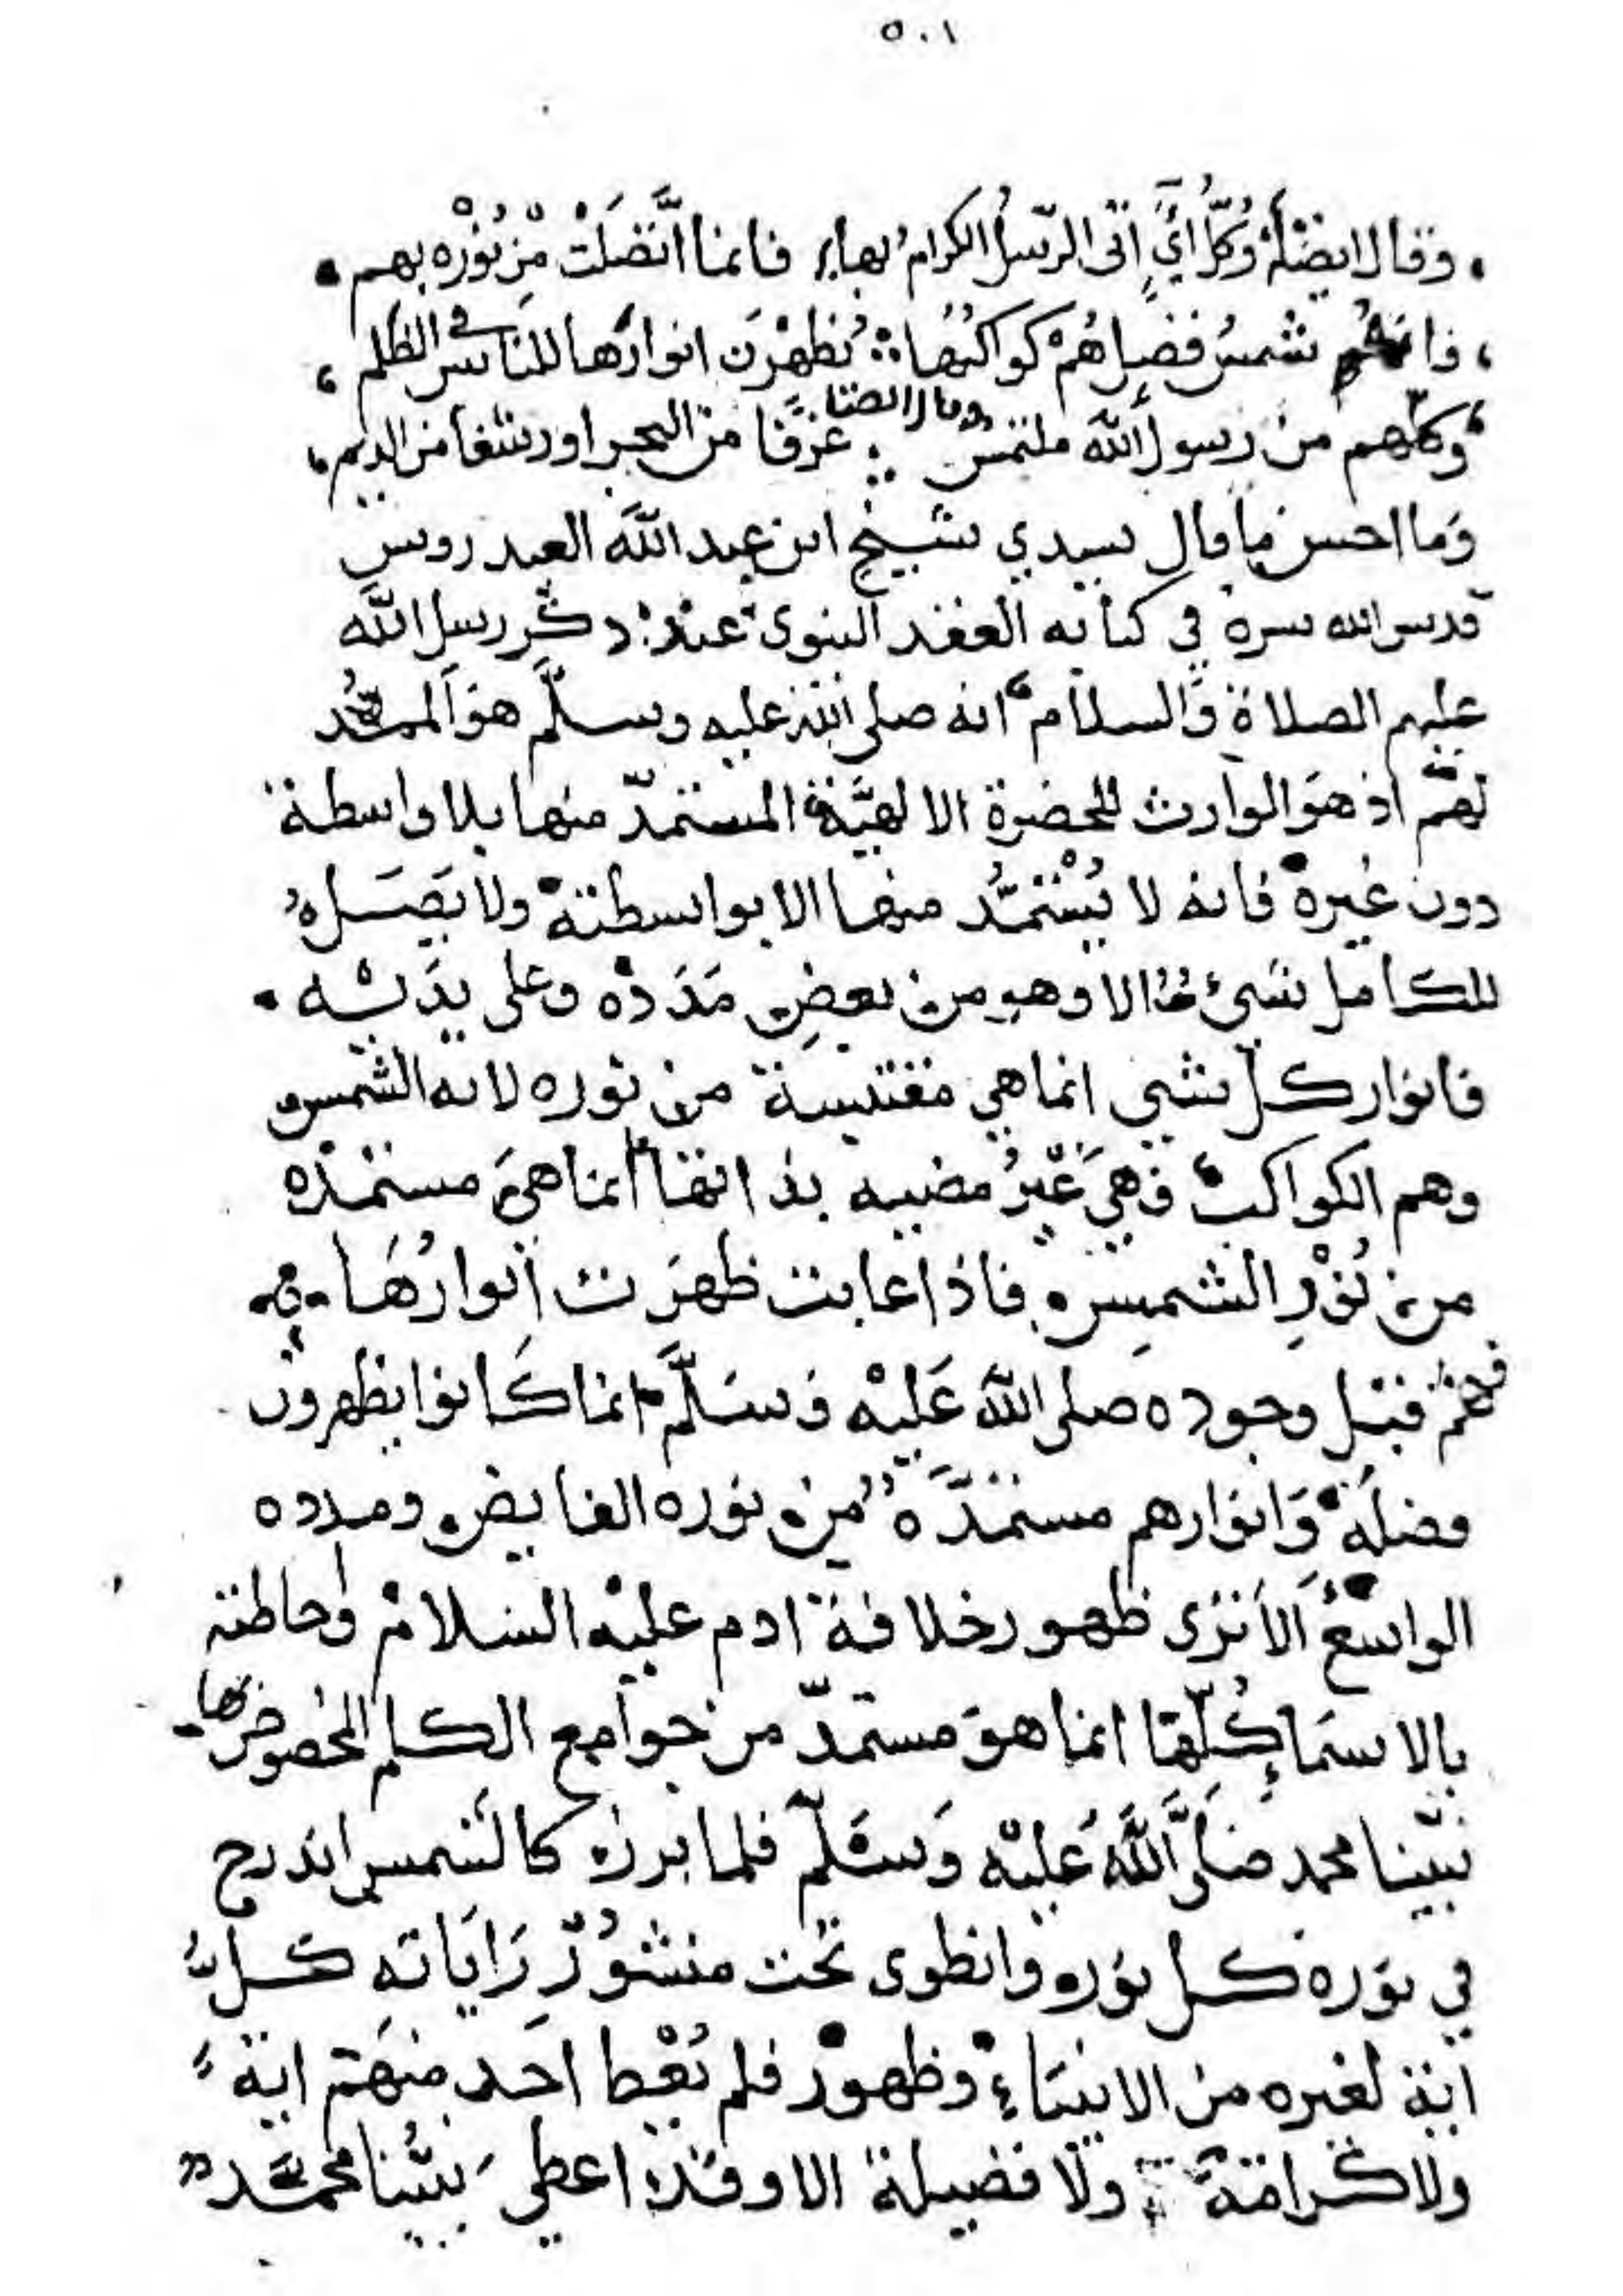 ٥٠١
وقال ايضا وكل اي اتى الرسل الكرام بها فانما اتصلت من نوره بهم
فانه شمس فضل هم كواكبها يظهرن انوارها للناس في الظلم
وقال ايضا
وكلهم من رسول الله ملتمس غرفا من البحر او رشفا من الديم
وما احسن ما قال سيدي شيخ ابن عبد الله العيدروس
قدس الله سره في كتابه العقد النبوى عند ذكر رسل الله
عليهم الصلاة والسلام انه صلى الله عليه وسلم هو الممد
لهم اذ هو الوارث للحضرة الالهية المستمد منها بلا واسطة
دون غيره فانه لا يستمد منها الا بواسطته ولا يصل
للكامل شيء الا وهو من بعض مدده وعلى يديه
فانوار كل شي انما هي مقتبسة من نوره لانه الشمس
وهم الكواكب فهي غير مضيه بذاتها انما هي مستمده
من نور الشمس فاذا غابت ظهرت انوارها
فهم قبل وجوده صلى الله عليه وسلم انما كانوا يظهرون
فضله وانوارهم مستمدة من نوره الفايض ومدده
الواسع الا ترى ظهور خلافة ادم عليه السلام واحاطته
بالاسماء كلها انما هو مستمد من جوامع الكلم المخصوص بها
نبينا محمد صلى الله عليه وسلم فلما برز كالشمس اندرج
في نوره كل نور وانطوى تحت منشور راياته كل
اية لغيره من الانبياء وظهور فلم يعط احد منهم اية
ولا كرامة ولا فضيلة الا وقد اعطي نبينا محمد